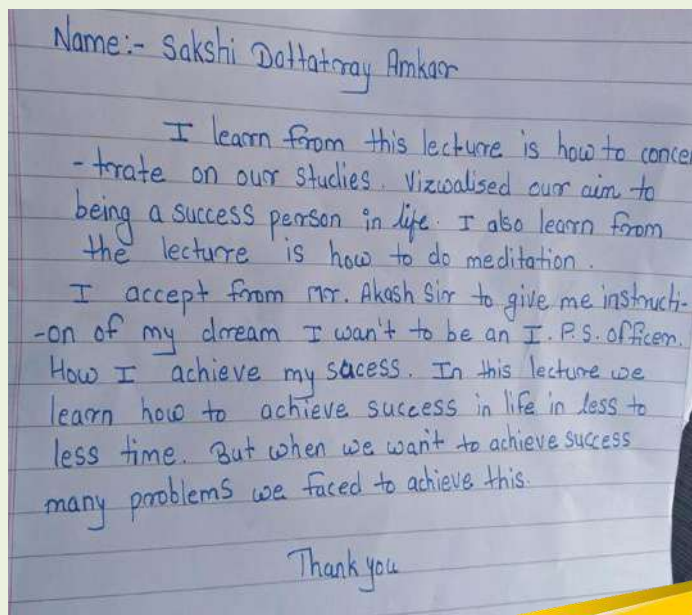 Name:- Sakshi Dattatray Amkar
I learn from this lecture is how to concen
- trate on our studies. Vizwalised our aim to
being a success person in life. I also learn from
the lecture is how to do meditation.
I accept from Mr. Akash Sir to give me instructi-
-on of my dream I wan't to be an I.P.S. officer.
How I achieve my sacess. In this lecture we
learn how to achieve success in life in less to
less time. But when we wan't to achieve success
many problems we faced to achieve this.
Thank you